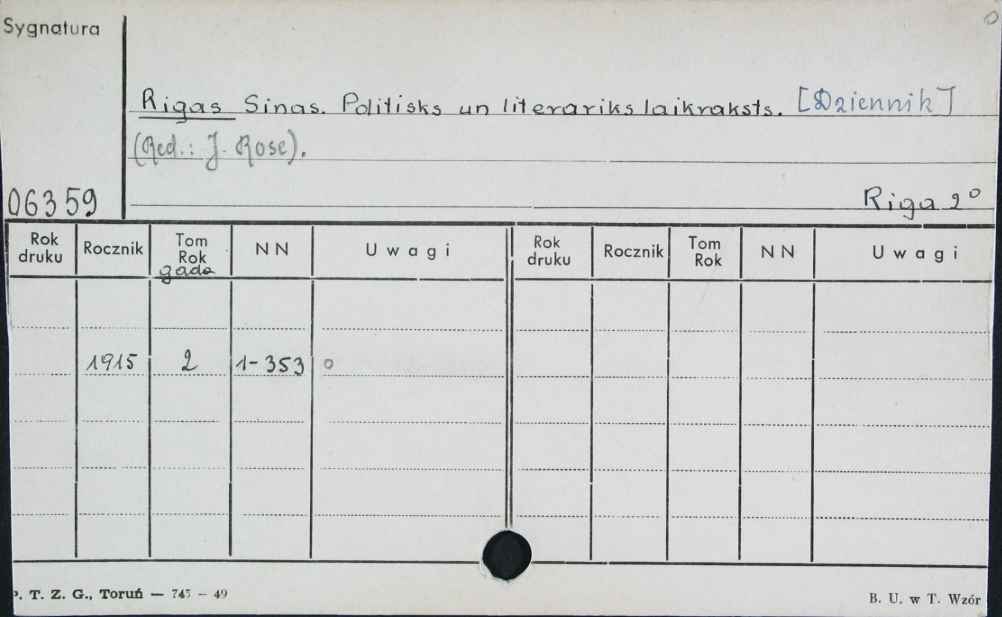 Sygnatura
Rigas Sinas. Politisks un literariks laikraksts. [Dziennik]
(Red.: J. Rose).
06359
Riga 2°
Rok druku Rocznik Tom Rok gada NN Uwagi Rok druku Rocznik Tom Rok NN Uwagi
1915 2 1-353 o
P. T. Z. G., Toruń — 745 - 49
B. U. w T. Wzór